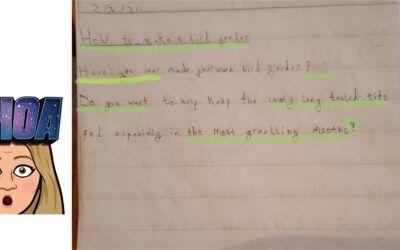 How to make a bird feeder
Have you ever made your own bird feeder?
Do you want to help keep the lovely long tailed tits
fed especially in the most gruelling months?